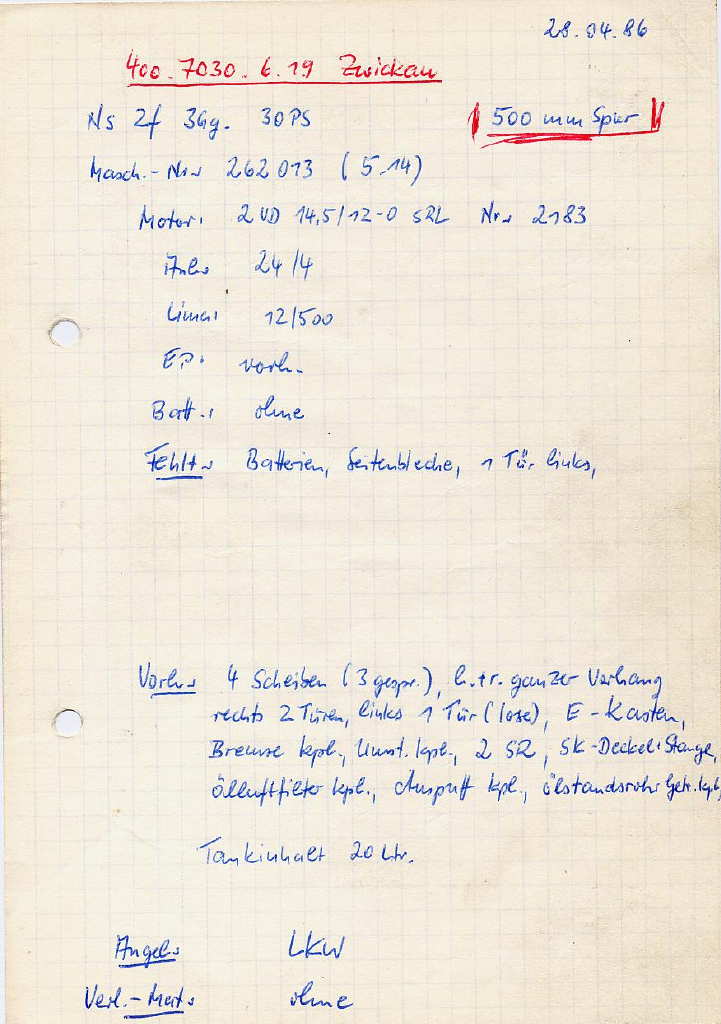 28.04.86
400-7030.6.19 Zwickau
Ns 2f 3Gg. 30PS
500 mm Spur
Masch.-Nr. 262 013 (5.14)
Motor: 2 VD 14,5/12-0 SRL Nr. 2183
Anl. 24/4
Lima: 12/500
EP: vorh.
Batt.: ohne
Fehlt: Batterien, Seitenbleche, 1 Tür links,
Vorh: 4 Scheiben (3 gespr.), h.+r. ganzer Vorhang
rechts 2 Türen, links 1 Tür (lose), E-Kasten,
Bremse kpl., Umst. kpl., 2 SR, SK-Deckel+Stange,
Ölluftfilter kpl., Auspuff kpl., Ölstandsrohr Getr. kpl,
Tankinhalt 20 Ltr.
Angel: LKW
Verl.-Mat: ohne